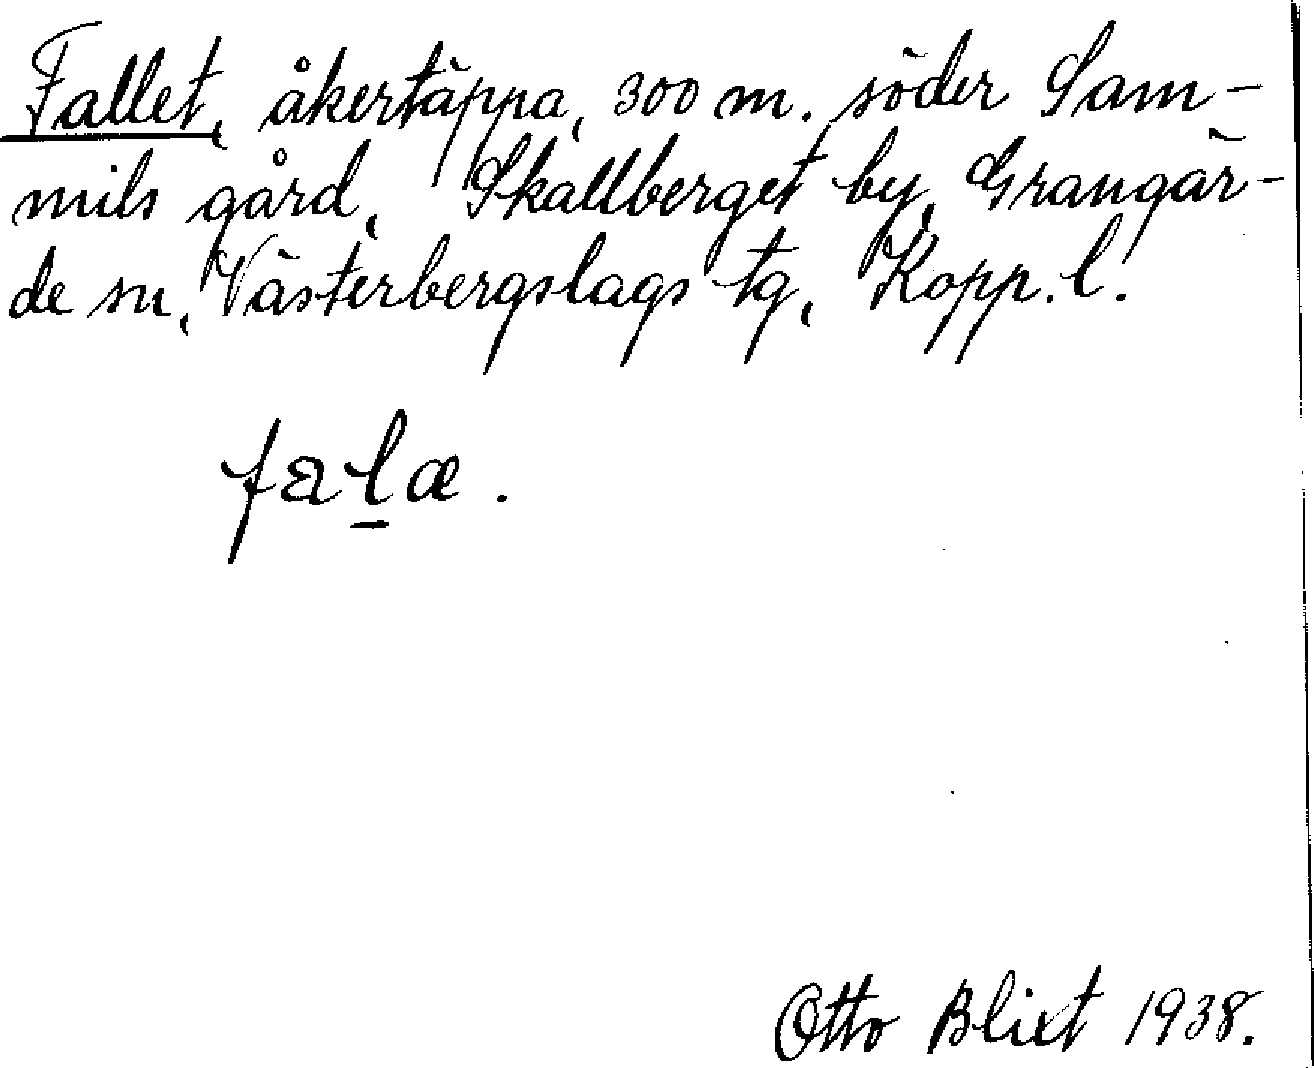 Fallet, åkertäppa, 300 m. söder Sam-
mils gård, Skallberget by, Grangär-
de sn, Västerbergslags tg, Kopp. l.
fala̱e.
Otto Blixt 1938.